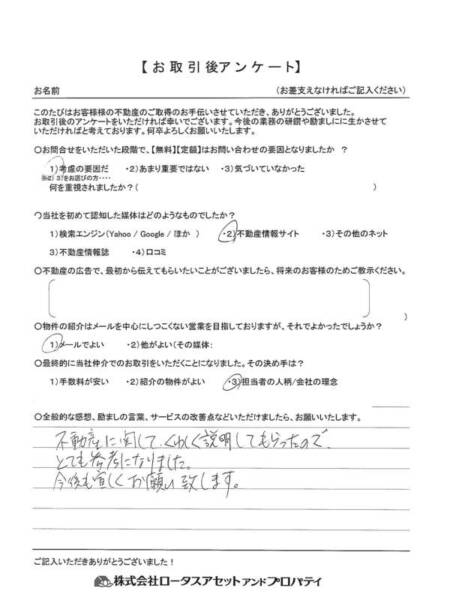 【お取引後アンケート】
お名前　(お差支えなければご記入ください)
このたびはお客様様の不動産のご取得のお手伝いさせていただき、ありがとうございました。
お取引後のアンケートをいただければ幸いでございます。今後の業務の研鑽や励ましにに生かさせて
いただければと考えております。何卒よろしくお願いいたします。
○お問合せをいただいた段階で、【無料】【定額】はお問い合わせの要因となりましたか ？
1)考慮の要因だ　・2)あまり重要ではない　・3)気づいていなかった
※2) 3)をお選びの方・・・・
何を重視されましたか？(　)
○当社を初めて認知した媒体はどのようなものでしたか？
1)検索エンジン(Yahoo / Google / ほか　)　・2)不動産情報サイト　・3)その他のネット
3)不動産情報誌　・4)口コミ
○不動産の広告で、最初から伝えてもらいたいことがございましたら、将来のお客様のためご教示ください。
○物件の紹介はメールを中心にしつこくない営業を目指しておりますが、それでよかったでしょうか？
1)メールでよい　・2)他がよい(その媒体:　)
○最終的に当社仲介でのお取引をいただくことになりました。その決め手は？
1)手数料が安い　・2)紹介の物件がよい　・3)担当者の人柄/会社の理念
○全般的な感想、励ましの言葉、サービスの改善点などいただけましたら、お願いいたします。
不動産に関して、くわしく説明してもらったので、
とても参考になりました。
今後も宜しくお願い致します。
ご記入いただきありがとうございました！
株式会社ロータスアセットアンドプロパテイ